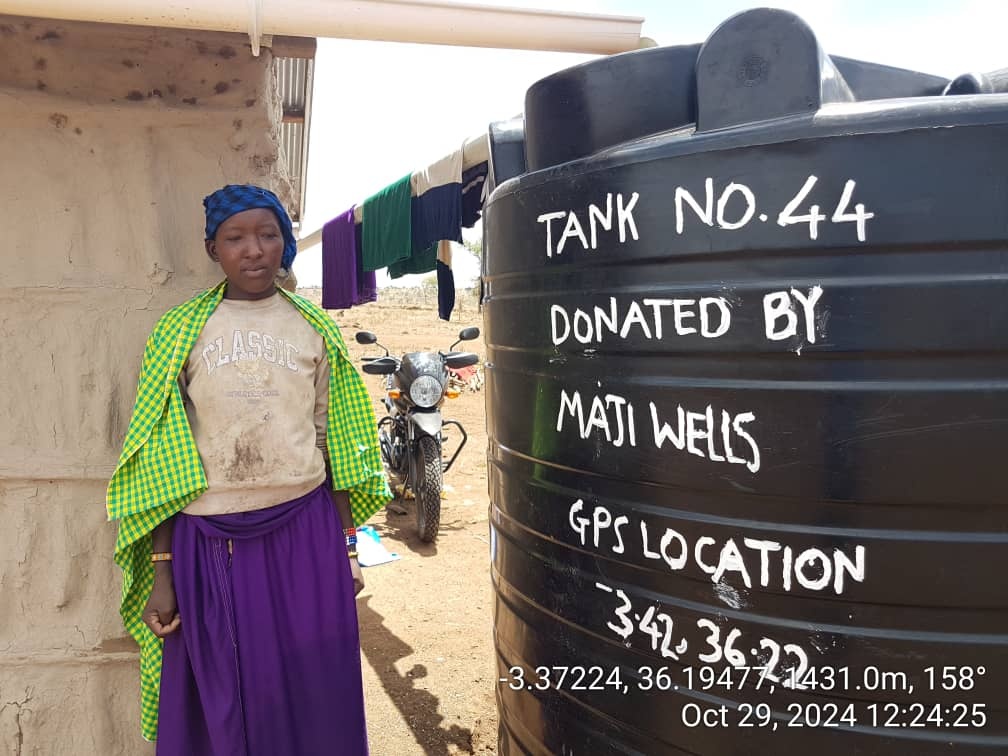 CLASSIC
TANK NO.44
DONATED BY
MAJI WELLS
GPS LOCATION
-3.42, 36.22
-3.37224, 36.19477, 1431.0m, 158°
Oct 29, 2024 12:24:25